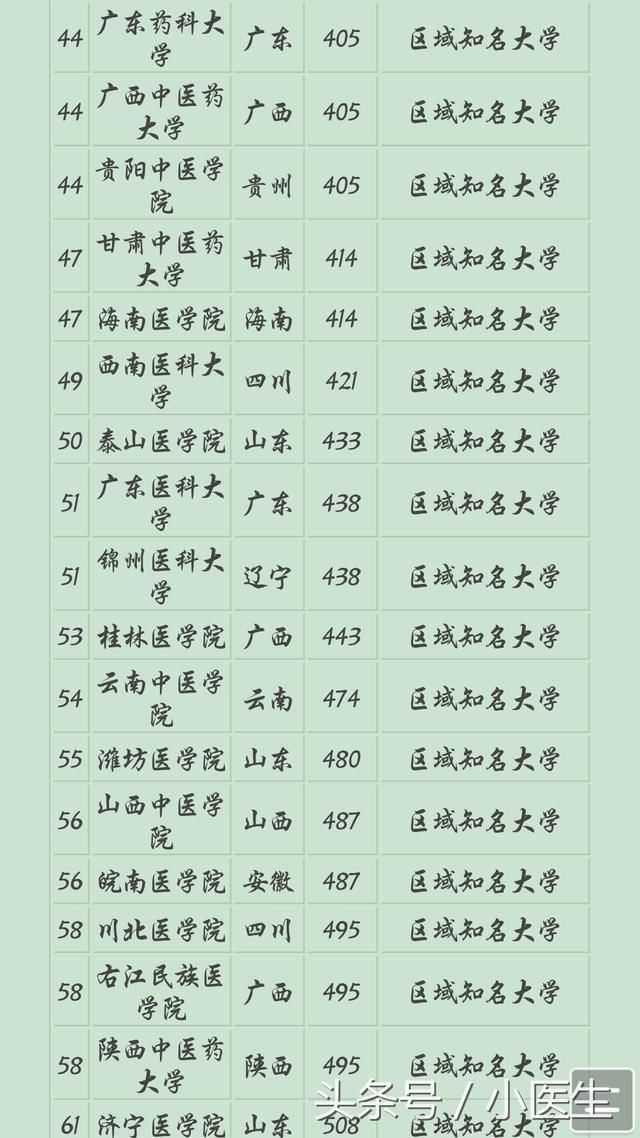 44 广东药科大学 广东 405 区域知名大学
44 广西中医药大学 广西 405 区域知名大学
44 贵阳中医学院 贵州 405 区域知名大学
47 甘肃中医药大学 甘肃 414 区域知名大学
47 海南医学院 海南 414 区域知名大学
49 西南医科大学 四川 421 区域知名大学
50 泰山医学院 山东 433 区域知名大学
51 广东医科大学 广东 438 区域知名大学
51 锦州医科大学 辽宁 438 区域知名大学
53 桂林医学院 广西 443 区域知名大学
54 云南中医学院 云南 474 区域知名大学
55 潍坊医学院 山东 480 区域知名大学
56 山西中医学院 山西 487 区域知名大学
56 皖南医学院 安徽 487 区域知名大学
58 川北医学院 四川 495 区域知名大学
58 右江民族医学院 广西 495 区域知名大学
58 陕西中医药大学 陕西 495 区域知名大学
61 济宁医学院 山东 508 区域知名大学
头条号 / 小医生